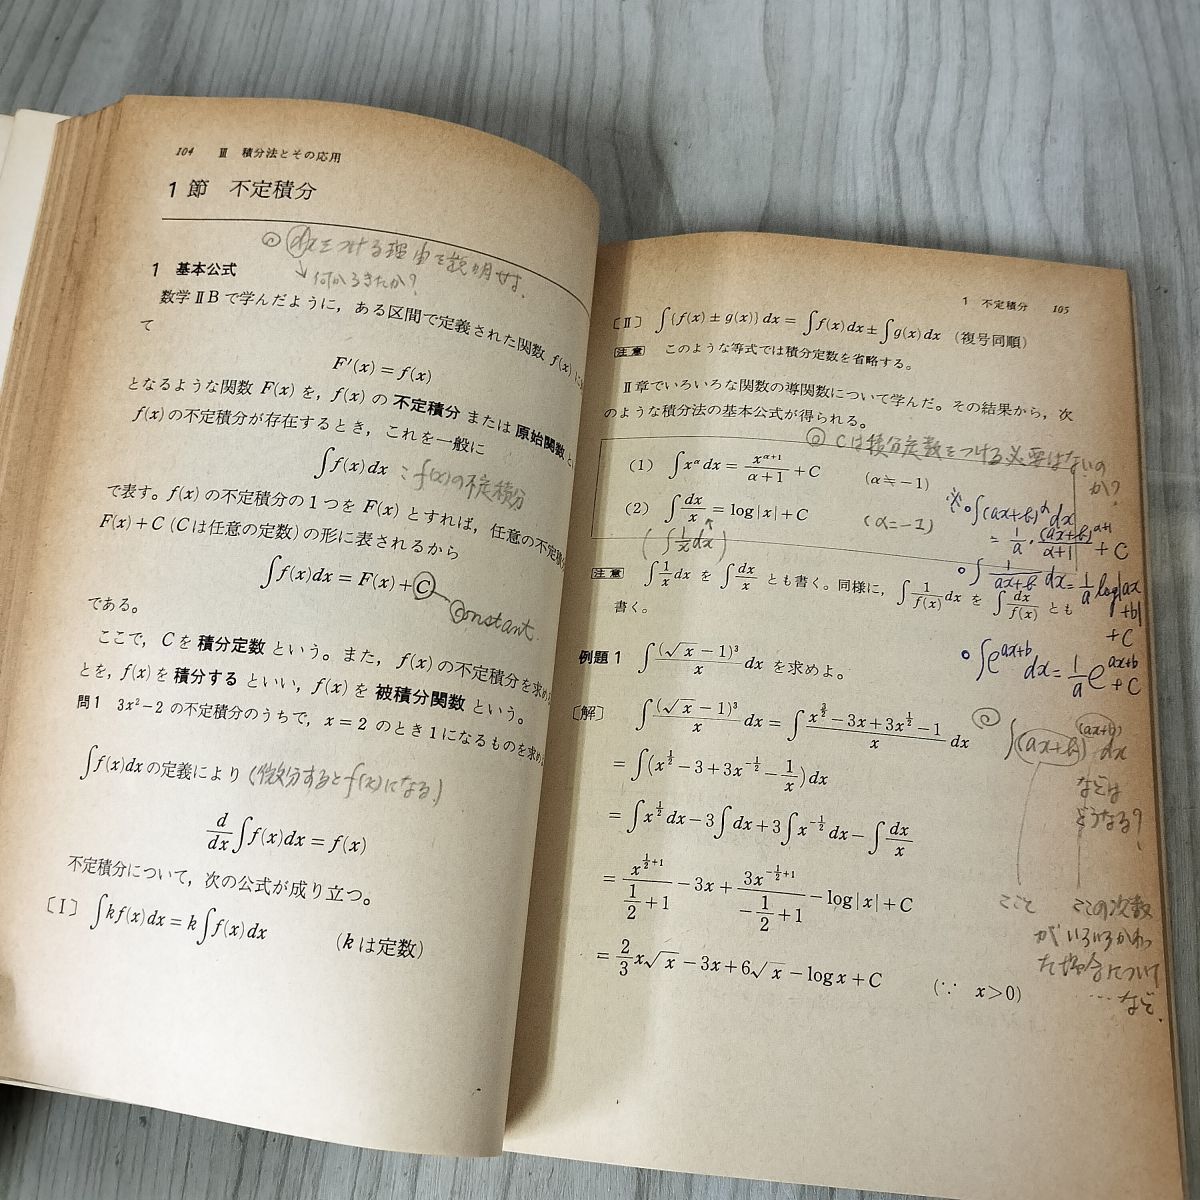 104 Ⅲ 積分法とその応用
1節 不定積分
dxをつける理由を説明せよ.
↘何からきたか?
1 基本公式
数学ⅡBで学んだように，ある区間で定義された関数 f(x) に
て
F′(x)=f(x)
となるような関数 F(x) を，f(x) の 不定積分 または 原始関数 と
f(x) の不定積分が存在するとき，これを一般に
∫f(x)dx : f(x)の不定積分
で表す。f(x) の不定積分の1つを F(x) とすれば，任意の不定積分
F(x)+C (Cは任意の定数) の形に表されるから
∫f(x)dx=F(x)+C
constant.
である。
ここで，Cを 積分定数 という。また，f(x) の不定積分を求め
とを，f(x)を 積分する といい，f(x)を 被積分関数 という。
問1 3x²−2 の不定積分のうちで，x=2 のとき1になるものを求め
∫f(x)dx の定義により (微分するとf(x)になる.)
d/dx ∫f(x)dx=f(x)
不定積分について，次の公式が成り立つ。
〔Ⅰ〕 ∫kf(x)dx=k∫f(x)dx (kは定数)
1 不定積分 105
〔Ⅱ〕 ∫{f(x)±g(x)}dx=∫f(x)dx±∫g(x)dx (復号同順)
注意 このような等式では積分定数を省略する。
Ⅱ章でいろいろな関数の導関数について学んだ。その結果から，次
のような積分法の基本公式が得られる。
Cは積分定数をつける必要はないの
か?
(1) ∫x^α dx = x^(α+1)/(α+1) + C (α≒−1)
(2) ∫dx/x = log|x|+C (α=−1)
(∫1/x dx)
※∘∫(ax+b)^α dx
= 1/a・(ax+b)^(α+1)/(α+1) + C
∘∫1/(ax+b) dx = 1/a log|ax
+b|
+C
∘∫e^(ax+b) dx = 1/a e^(ax+b) + C
注意 ∫1/x dx を ∫dx/x とも書く。同様に，∫1/f(x) dx を ∫dx/f(x) とも
書く。
例題1 ∫(√x−1)³/x dx を求めよ。
〔解〕 ∫(√x−1)³/x dx = ∫(x^(3/2)−3x+3x^(1/2)−1)/x dx
=∫(x^(1/2)−3+3x^(−1/2)−1/x)dx
=∫x^(1/2)dx−3∫dx+3∫x^(−1/2)dx−∫dx/x
= x^(1/2+1)/(1/2+1) −3x+ 3x^(−1/2+1)/(−1/2+1) −log|x|+C
= 2/3 x√x−3x+6√x−log x+C (∵ x>0)
∫(ax+b)^(ax+b) dx
などは
どうなる?
ここと ここの次数
がいろいろかわっ
た場合について
…など.